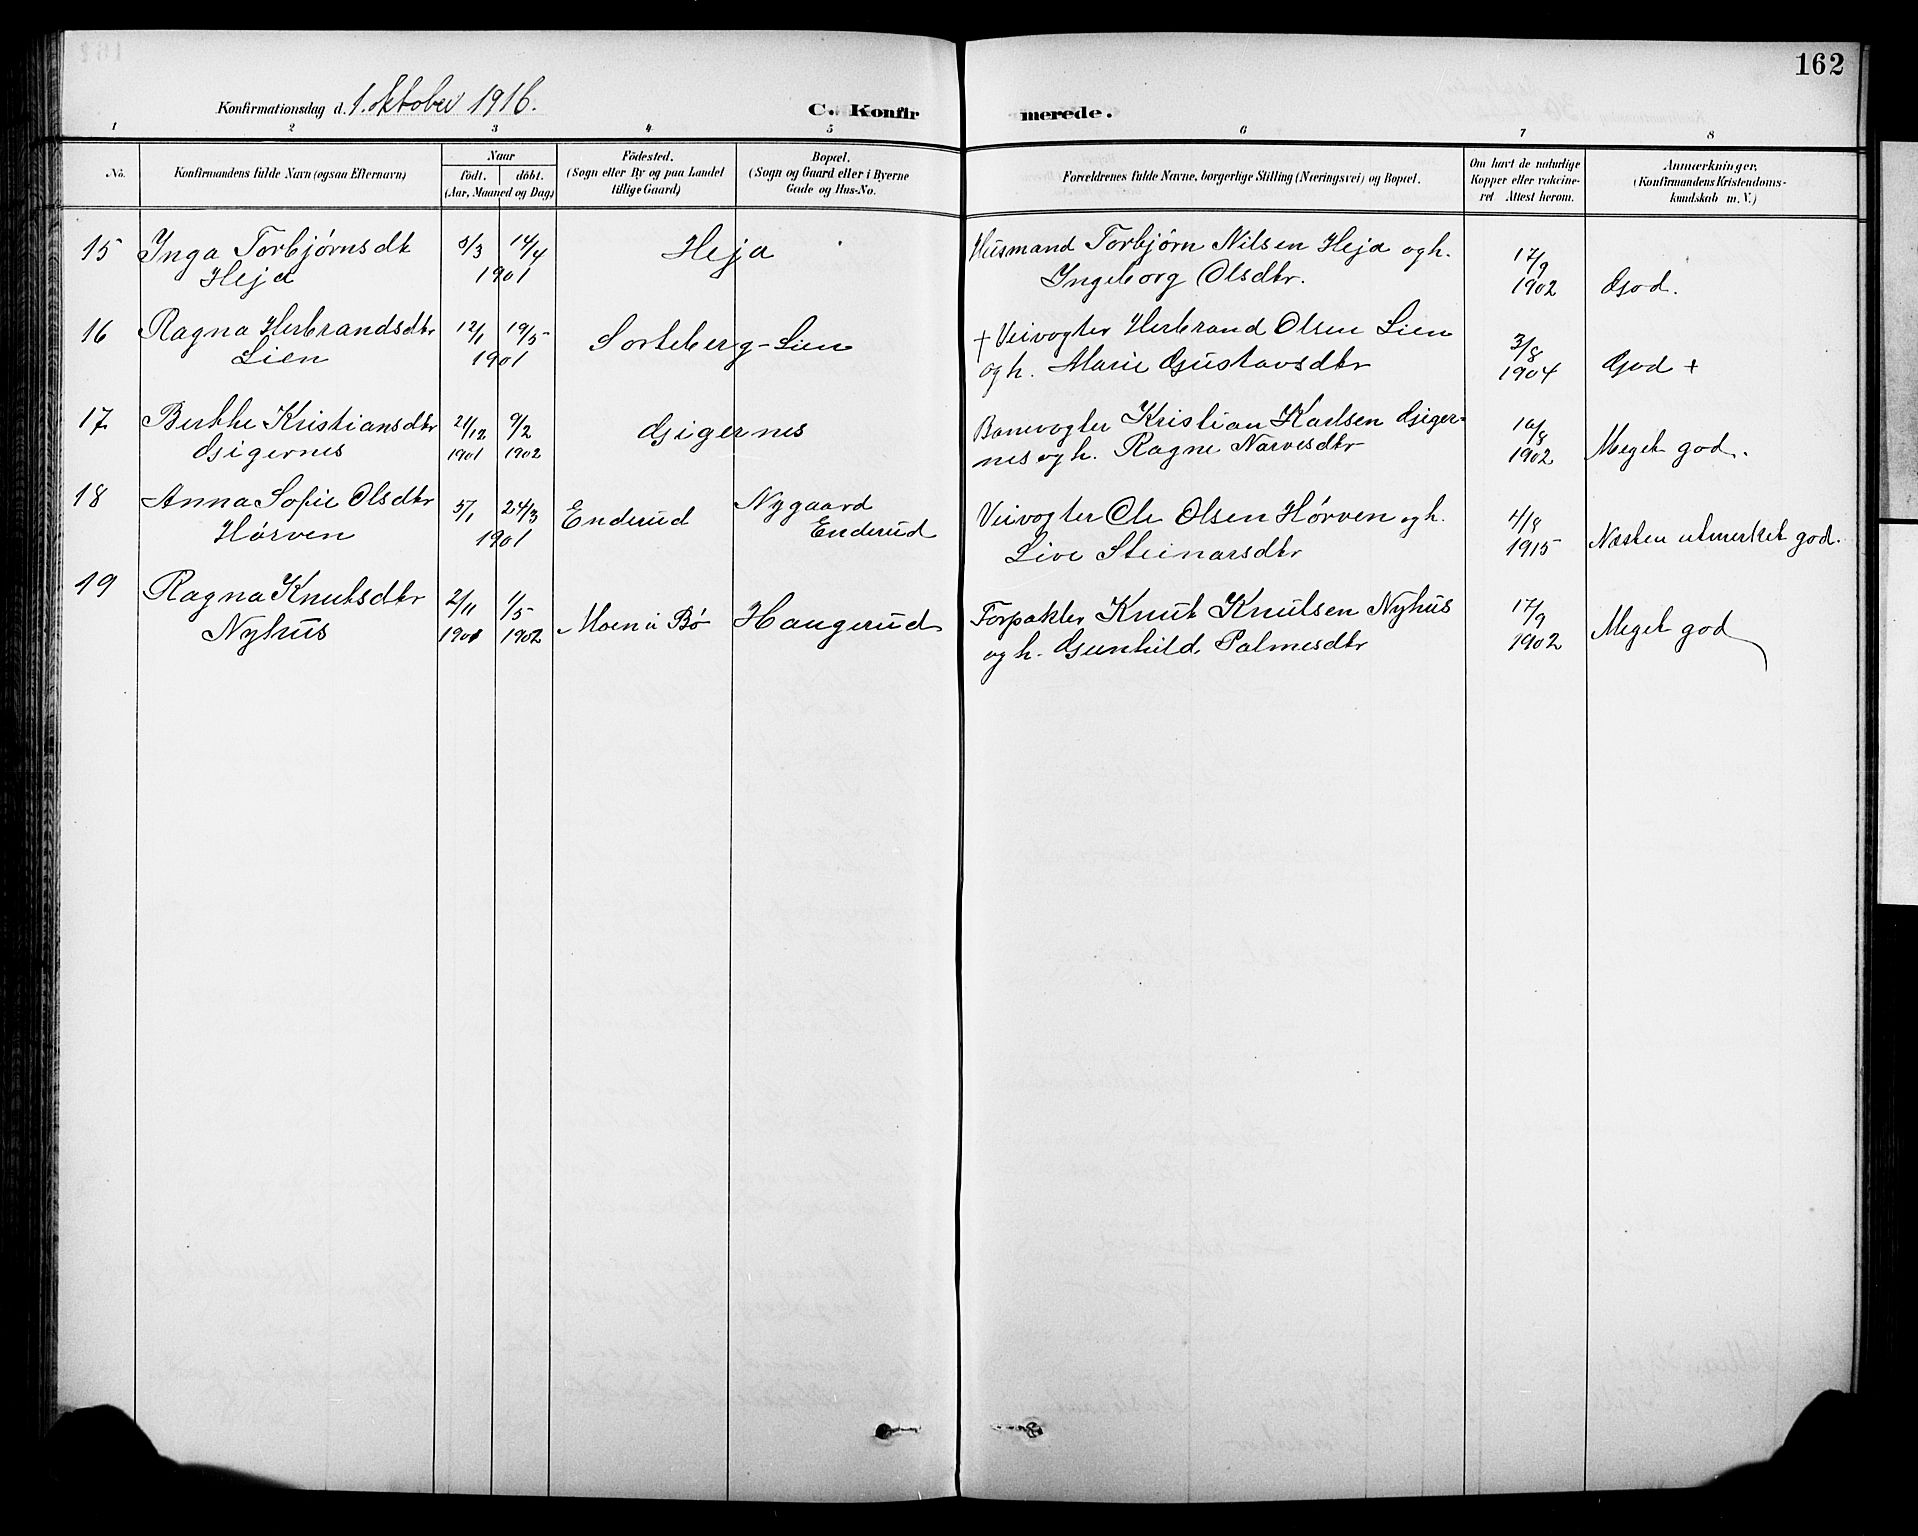 162
Konfirmationsdag d. 1. Oktober 1916.
C. Konfir
merede.
1 2 3 4 5 6 7 8
No.
Konfirmandens fulde Navn (ogsaa Efternavn)
Naar
födt. döbt.
(Aar, Maaned og Dag)
Födested.
(Sogn eller By og paa Landet
tillige Gaard)
Bopæl.
(Sogn og Gaard eller i Byerne
Gade og Hus-No.
Forældrenes fulde Navne, borgerlige Stilling (Næringsvei) og Bopæl.
Om havt de naturlige
Kopper eller vakcine-
ret Attest herom.
Anmærkninger,
(Konfirmandens Kristendoms-
kundskab m. V.)
15 Inga Torbjørnsdt 8/3 14/4 Heja Husmand Torbjørn Nilsen Heja og h. 17/9
Heja 1901 Ingeborg Olsdtr. 1902 God.
16 Ragna Herbrandsdtr 12/1 19/5 Sorteberg-Lien + Veivogter Herbrand Olsen Lien 3/8
Lien 1901 og h. Marie Gustavsdtr 1904 God +
17 Berthe Kristiansdtr 21/12 9/2 Gigernes Banevogter Kristian Karlsen Giger= 16/8
Gigernes 1901 1902 nes og h. Ragne Narvesdtr 1902 Meget god.
18 Anna Sofie Olsdtr 5/1 24/3 Enderud Nygaard Veivogter Ole Olsen Hørven og h. 4/8
Hørven 1901 Enderud Live Steinarsdtr 1915 Næsten utmerket god.
19 Ragna Knutsdtr 2/11 1/5 Moen i Bø Haugerud Forpakter Knut Knutsen Nyhus 17/9
Nyhus 1901 1902 og h. Gunhild Palmesdtr 1902 Meget god